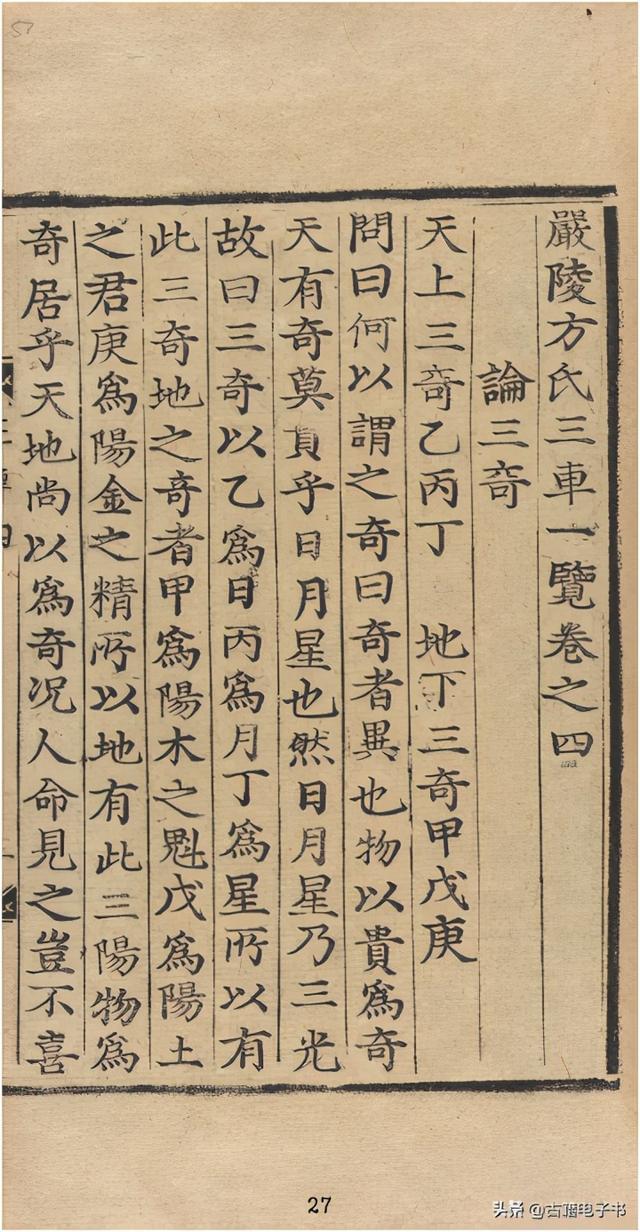 嚴陵方氏三車一覽卷之四
論三奇
天上三奇乙丙丁 地下三奇甲戊庚
問曰何以謂之奇曰奇者異也物以貴爲奇
天有奇莫負乎日月星也然日月星乃三光
故曰三奇以乙爲日丙爲月丁爲星所以有
此三奇地之奇者甲爲陽木之魁戊爲陽土
之君庚爲陽金之精所以地有此三陽物爲
奇居乎天地尚以爲奇况人命見之豈不喜
27
头条@古籍电子书